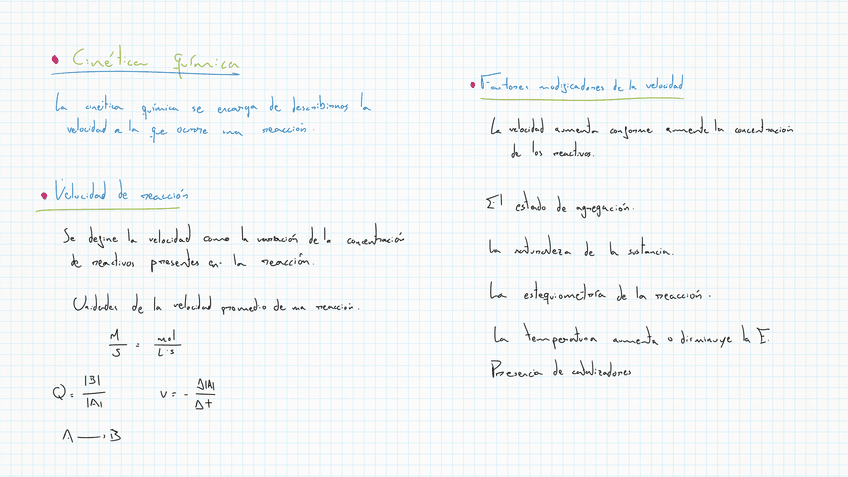 Cinética química
La cinética química se encarga de describirnos la
velocidad a la que ocurre una reacción.
Velocidad de reacción
Se define la velocidad como la variación de la concentración
de reactivos presentes en la reacción.
Unidades de la velocidad promedio de una reacción.
M/S = mol/L·s
Q = |B|/|A|
v = - Δ|A|/Δt
A → B
Factores modificadores de la velocidad
La velocidad aumenta conforme aumenta la concentración
de los reactivos.
El estado de agregación.
La naturaleza de la sustancia.
La estequiometría de la reacción.
La temperatura aumenta o disminuye la E.
Presencia de catalizadores